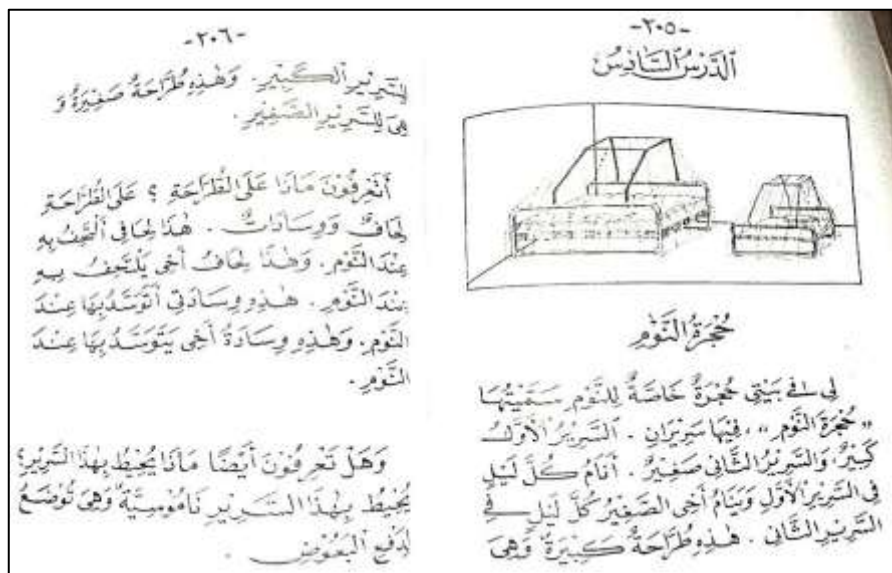 -٢٠٥-
اَلدَّرْسُ السَّادِسُ
حُجْرَةُ النَّوْمِ
لِى فِى بَيْتِى حُجْرَةٌ خَاصَّةٌ لِلنَّوْمِ سَمَّيْتُهَا
„حُجْرَةَ النَّوْمِ„، فِيْهَا سَرِيْرَانِ . اَلسَّرِيْرُ الْأَوَّلُ
كَبِيْرٌ، وَالسَّرِيْرُ الثَّانِى صَغِيْرٌ . أَنَامُ كُلَّ لَيْلٍ
فِى السَّرِيْرِ الْأَوَّلِ وَيَنَامُ أَخِى الصَّغِيْرُ كُلَّ لَيْلٍ فِى
السَّرِيْرِ الثَّانِى . هٰذِهِ طُرَّاحَةٌ كَبِيْرَةٌ وَهِىَ
-٢٠٦-
لِلسَّرِيْرِ الْكَبِيْرِ . وَهٰذِهِ طُرَّاحَةٌ صَغِيْرَةٌ وَ
هِىَ لِلسَّرِيْرِ الصَّغِيْرِ .
أَتَعْرِفُوْنَ مَاذَا عَلَى الطُّرَّاحَةِ ؟ عَلَى الطُّرَّاحَةِ
لِحَافٌ وَوِسَادَاتٌ . هٰذَا لِحَافِى أَلْتَحِفُ بِهِ
عِنْدَ النَّوْمِ . وَهٰذَا لِحَافُ أَخِى يَلْتَحِفُ بِهِ
عِنْدَ النَّوْمِ . هٰذِهِ وِسَادَتِى أَتَوَسَّدُ بِهَا عِنْدَ
النَّوْمِ . وَهٰذِهِ وِسَادَةُ أَخِى يَتَوَسَّدُ بِهَا عِنْدَ
النَّوْمِ .
وَهَلْ تَعْرِفُوْنَ أَيْضًا مَاذَا يُحِيْطُ بِهٰذَا السَّرِيْرِ؟
يُحِيْطُ بِهٰذَا السَّرِيْرِ نَامُوْسِيَّةٌ وَهِىَ تُوْضَعُ
لِدَفْعِ الْبَعُوْضِ .